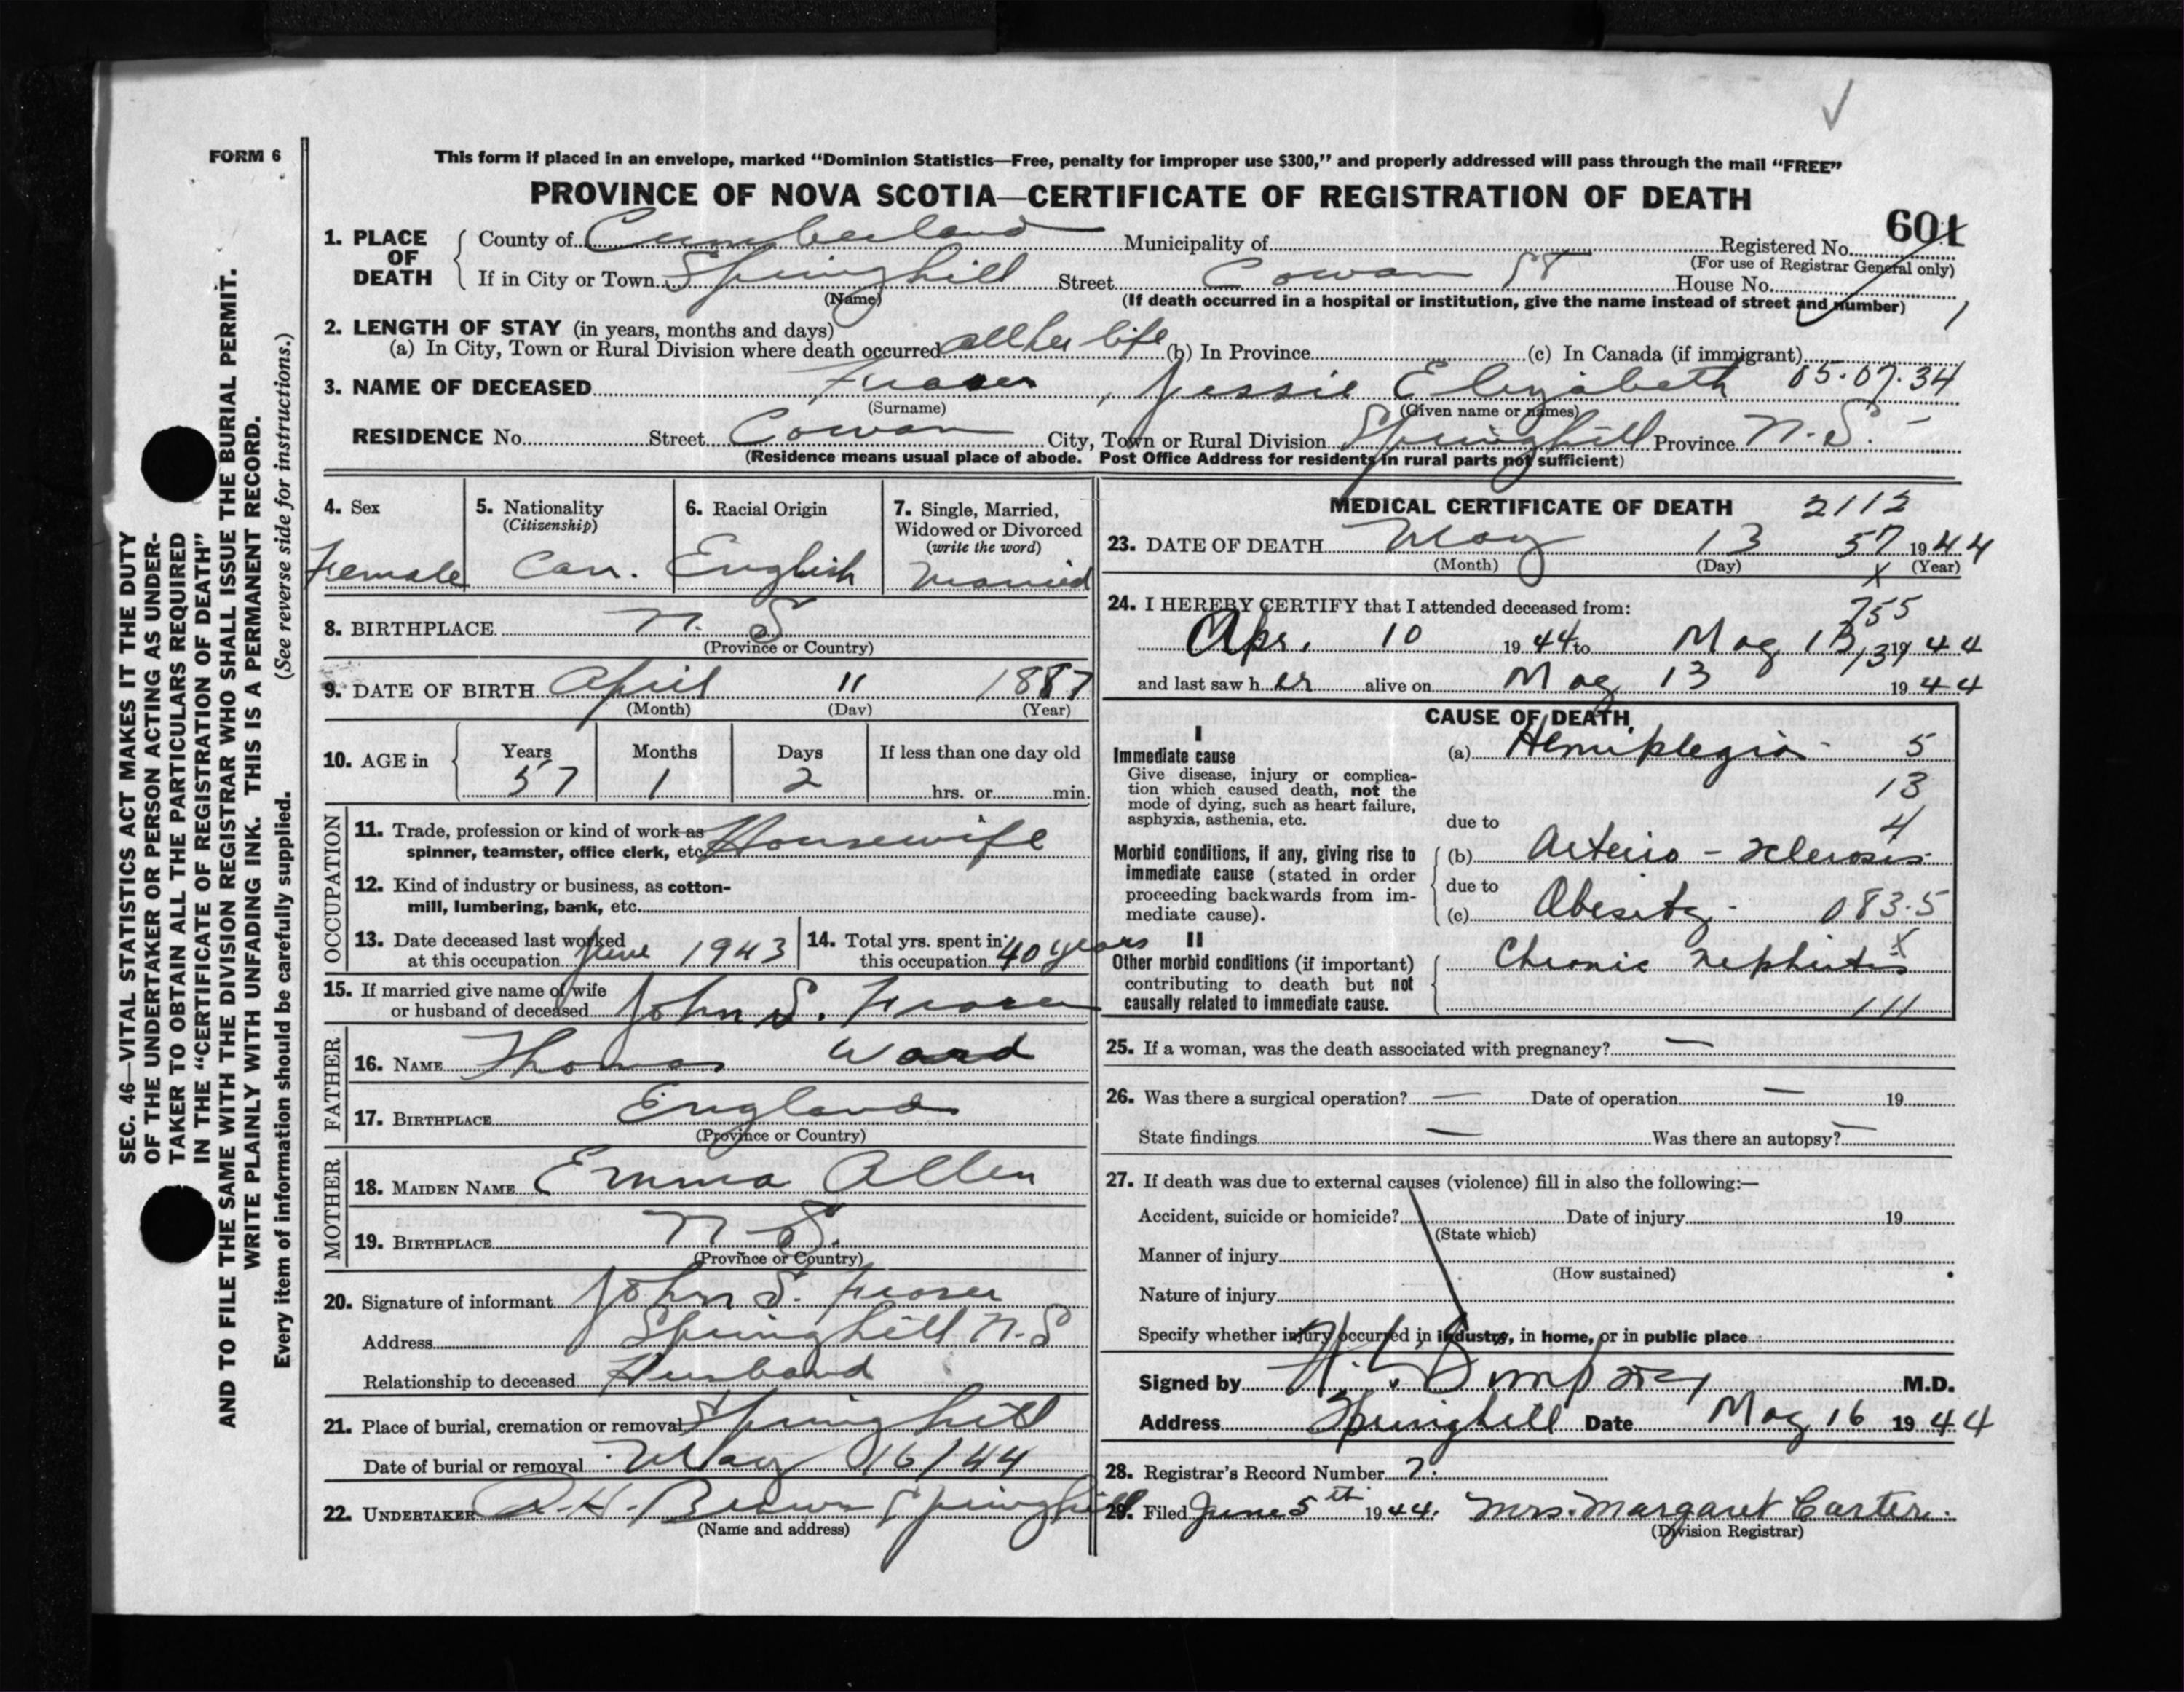 FORM 6
This form if placed in an envelope, marked "Dominion Statistics—Free, penalty for improper use $300," and properly addressed will pass through the mail "FREE"
PROVINCE OF NOVA SCOTIA—CERTIFICATE OF REGISTRATION OF DEATH
601
1. PLACE OF DEATH
County of Cumberland Municipality of Registered No.
(For use of Registrar General only)
If in City or Town Springhill Street Cowan St House No.
(Name) (If death occurred in a hospital or institution, give the name instead of street and number)
2. LENGTH OF STAY (in years, months and days)
(a) In City, Town or Rural Division where death occurred all her life (b) In Province (c) In Canada (if immigrant)
3. NAME OF DECEASED Fraser, Jessie Elizabeth 05.07.34
(Surname) (Given name or names)
RESIDENCE No. Street Cowan City, Town or Rural Division Springhill Province N.S.
(Residence means usual place of abode. Post Office Address for residents in rural parts not sufficient)
4. Sex
Female
5. Nationality
(Citizenship)
Can.
6. Racial Origin
English
7. Single, Married,
Widowed or Divorced
(write the word)
Married
8. BIRTHPLACE N. S
(Province or Country)
9. DATE OF BIRTH April 11 1887
(Month) (Day) (Year)
10. AGE in
Years Months Days If less than one day old
57 1 2 hrs. or min.
OCCUPATION
11. Trade, profession or kind of work as
spinner, teamster, office clerk, etc. Housewife
12. Kind of industry or business, as cotton-
mill, lumbering, bank, etc.
13. Date deceased last worked
at this occupation June 1943
14. Total yrs. spent in
this occupation 40 years
15. If married give name of wife
or husband of deceased John S. Fraser
FATHER
16. NAME Thomas Ward
17. BIRTHPLACE England
(Province or Country)
MOTHER
18. MAIDEN NAME Emma Allen
19. BIRTHPLACE N S.
(Province or Country)
20. Signature of informant John S. Fraser
Address Springhill N.S
Relationship to deceased Husband
21. Place of burial, cremation or removal Springhill
Date of burial or removal May 16/44
22. UNDERTAKER A.H. Brown Springhill
(Name and address)
MEDICAL CERTIFICATE OF DEATH 2112
23. DATE OF DEATH May 13 57 1944
(Month) (Day) X (Year)
24. I HEREBY CERTIFY that I attended deceased from: 755
Apr. 10 1944 to May 13 1944
131
and last saw her alive on May 13 1944
CAUSE OF DEATH
I
Immediate cause
Give disease, injury or complica-
tion which caused death, not the
mode of dying, such as heart failure,
asphyxia, asthenia, etc.
(a) Hemiplegia - 5
13
due to 4
Morbid conditions, if any, giving rise to
immediate cause (stated in order
proceeding backwards from im-
mediate cause).
(b) Arterio - sclerosis
due to
(c) Obesity - 083.5
II
Other morbid conditions (if important)
contributing to death but not
causally related to immediate cause.
X
Chronic nephritis
111
25. If a woman, was the death associated with pregnancy? —
26. Was there a surgical operation? — Date of operation — 19
State findings — Was there an autopsy? —
27. If death was due to external causes (violence) fill in also the following:—
Accident, suicide or homicide? Date of injury 19
(State which)
Manner of injury
(How sustained)
Nature of injury
Specify whether injury occurred in industry, in home, or in public place
Signed by M.D.
Address Springhill Date May 16 1944
28. Registrar's Record Number 7.
29. Filed June 5th 1944. Mrs. Margaret Carter.
(Division Registrar)
SEC. 46—VITAL STATISTICS ACT MAKES IT THE DUTY
OF THE UNDERTAKER OR PERSON ACTING AS UNDER-
TAKER TO OBTAIN ALL THE PARTICULARS REQUIRED
IN THE "CERTIFICATE OF REGISTRATION OF DEATH"
AND TO FILE THE SAME WITH THE DIVISION REGISTRAR WHO SHALL ISSUE THE BURIAL PERMIT.
WRITE PLAINLY WITH UNFADING INK. THIS IS A PERMANENT RECORD.
Every item of information should be carefully supplied. (See reverse side for instructions.)